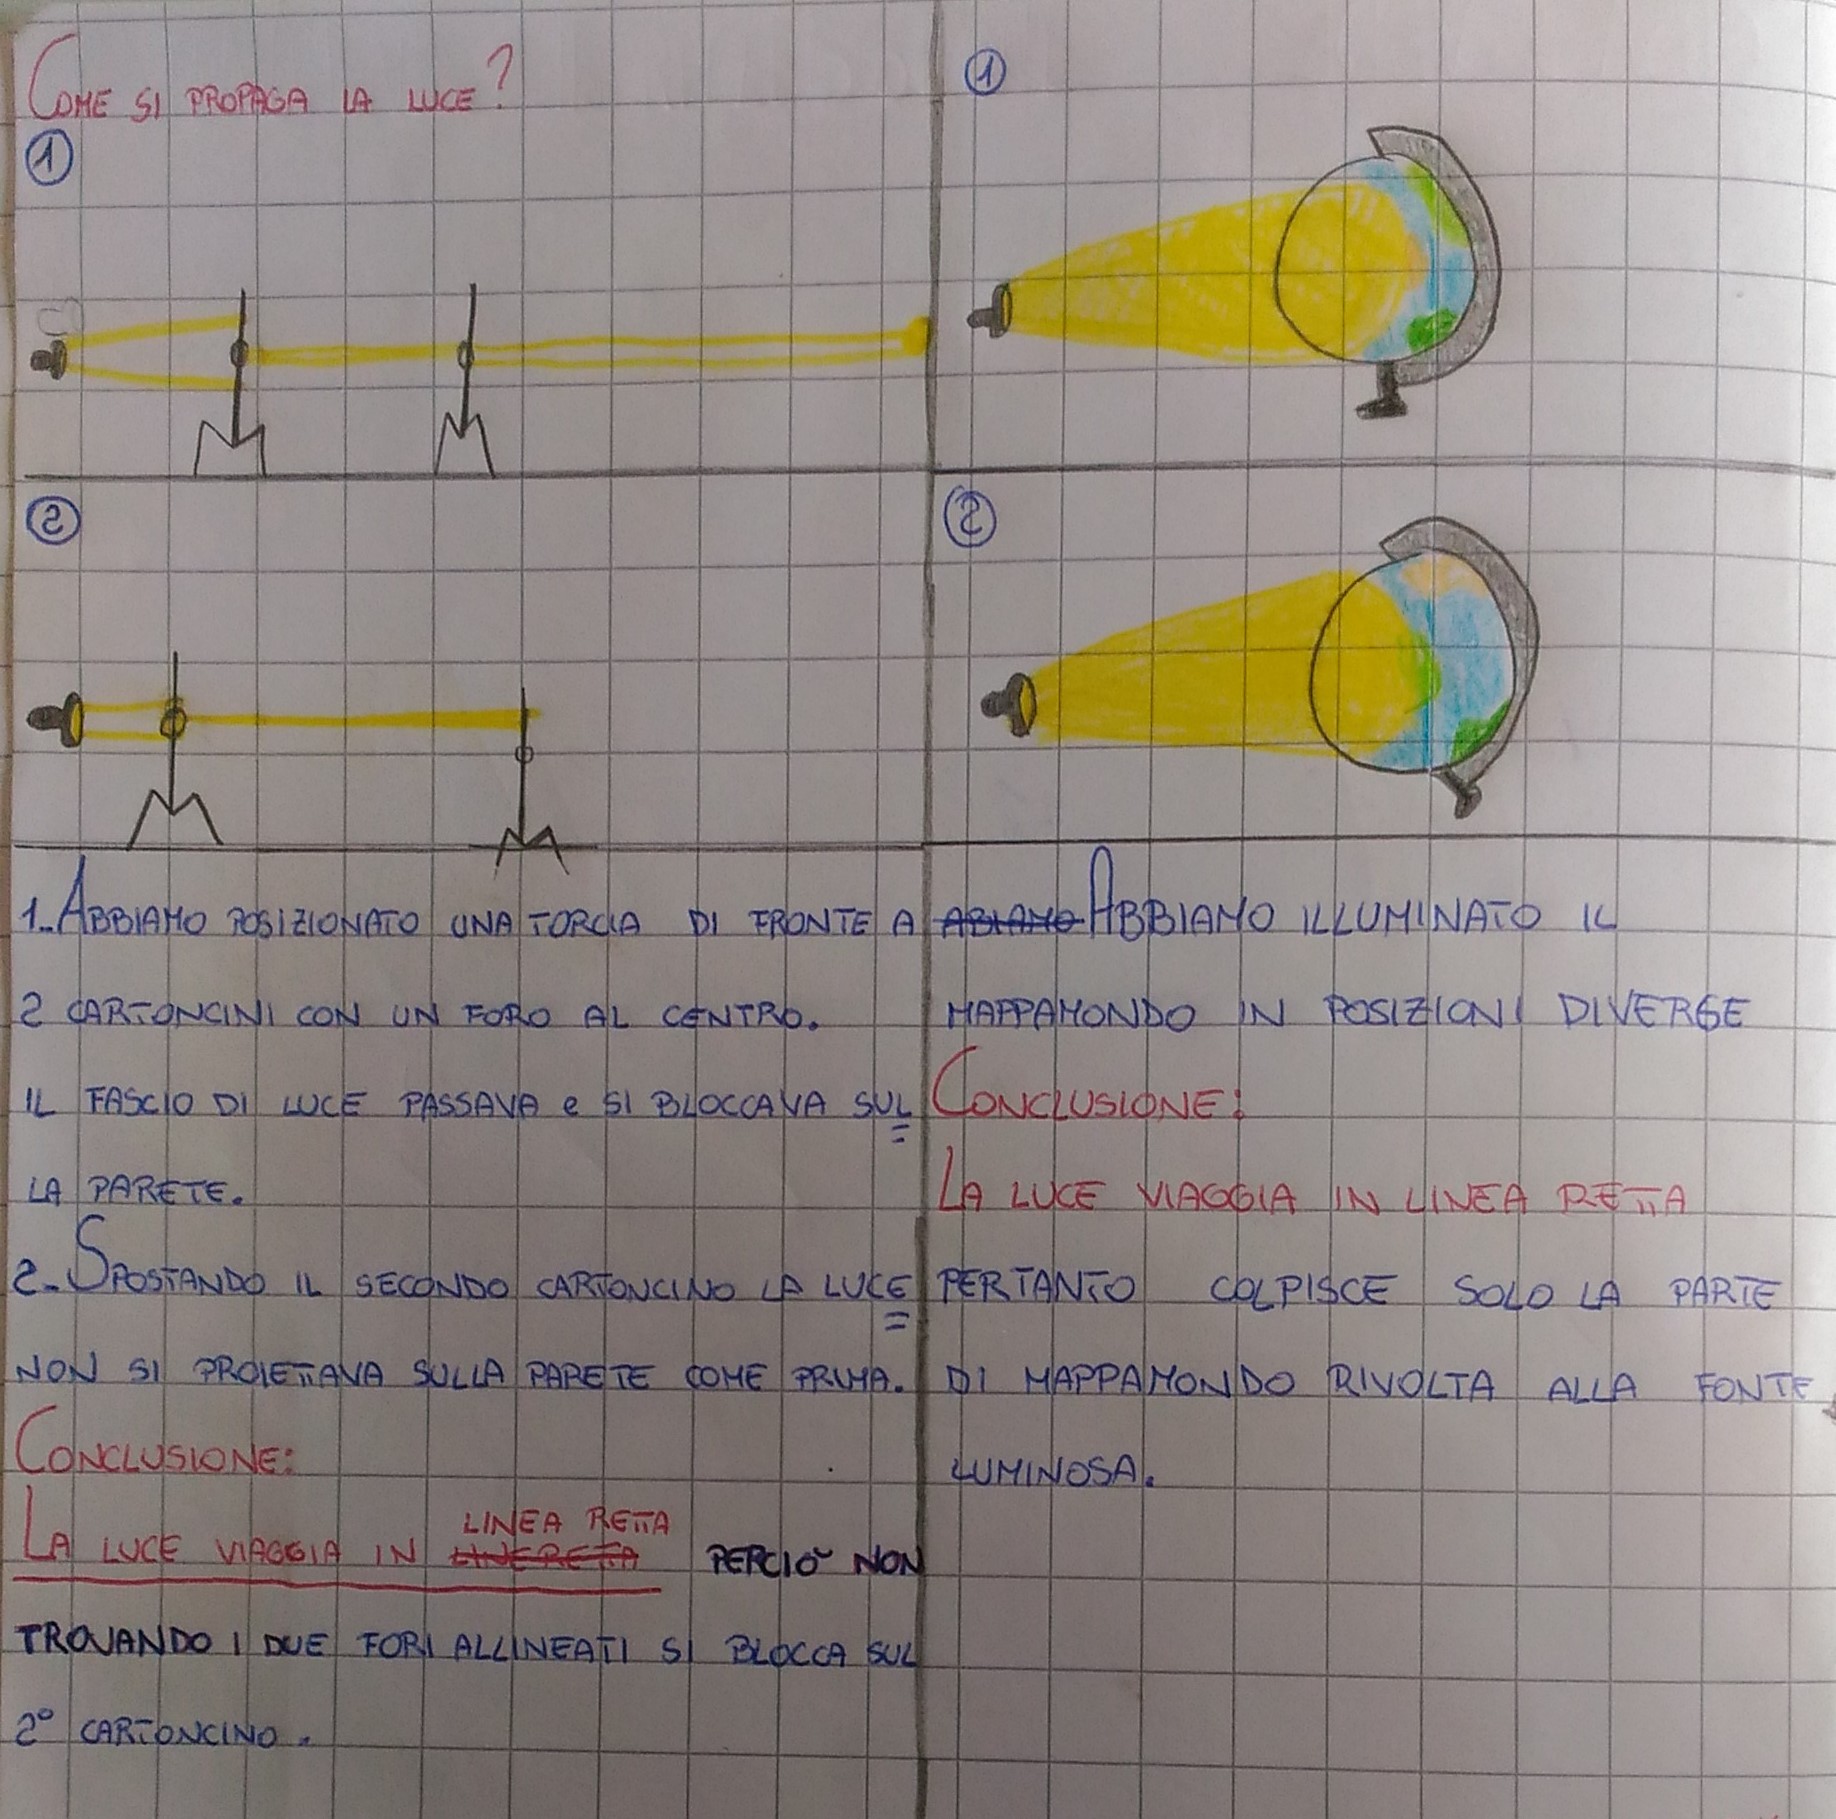 COME SI PROPAGA LA LUCE?
1
2
1. ABBIAMO POSIZIONATO UNA TORCIA DI FRONTE A
2 CARTONCINI CON UN FORO AL CENTRO.
IL FASCIO DI LUCE PASSAVA e SI BLOCCAVA SUL
LA PARETE.
2- SPOSTANDO IL SECONDO CARTONCINO LA LUCE
NON SI PROIETTAVA SULLA PARETE COME PRIMA.
CONCLUSIONE:
LINEA RETTA
LA LUCE VIAGGIA IN LINERETTA PERCIÒ NON
TROVANDO I DUE FORI ALLINEATI SI BLOCCA SUL
2° CARTONCINO.
1
2
ABIAMO ABBIAMO ILLUMINATO IL
MAPPAMONDO IN POSIZIONI DIVERSE
CONCLUSIONE:
LA LUCE VIAGGIA IN LINEA RETTA
PERTANTO COLPISCE SOLO LA PARTE
DI MAPPAMONDO RIVOLTA ALLA FONTE
LUMINOSA.